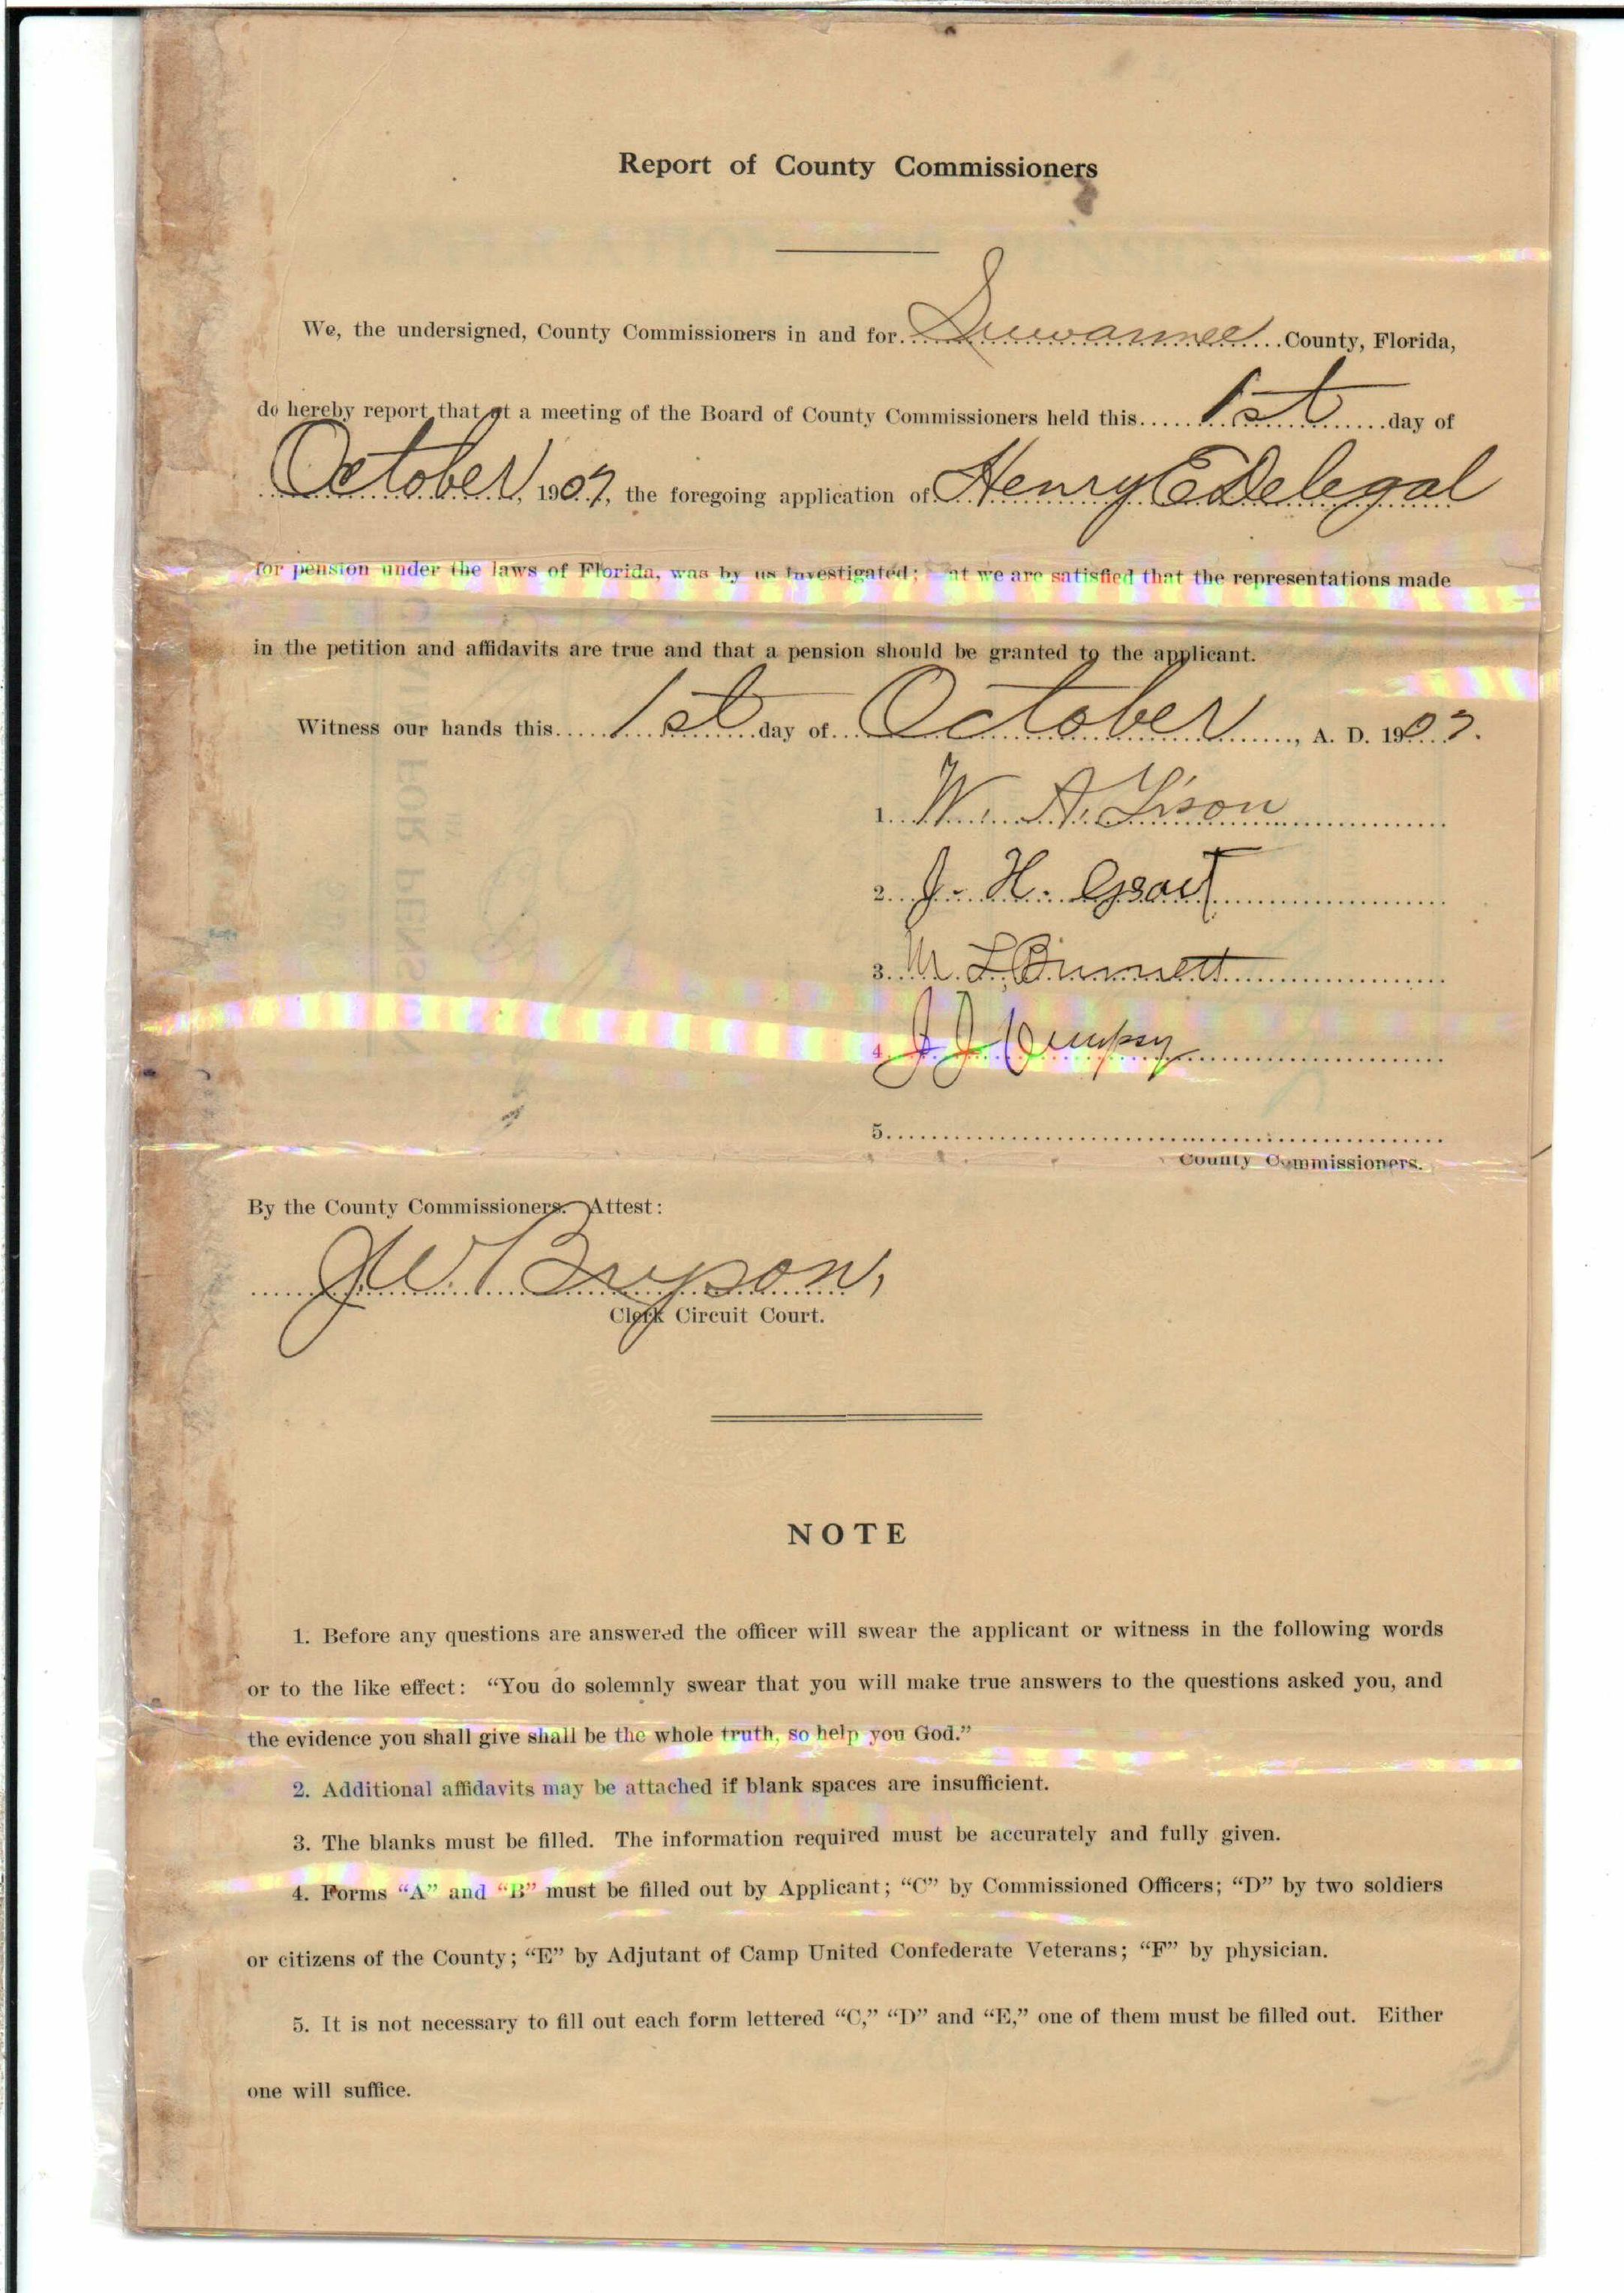 Report of County Commissioners
We, the undersigned, County Commissioners in and for Suwannee County, Florida,
do hereby report that at a meeting of the Board of County Commissioners held this 1st day of
October, 1907, the foregoing application of Henry E Delegal
for pension under the laws of Florida, was by us investigated; at we are satisfied that the representations made
in the petition and affidavits are true and that a pension should be granted to the applicant.
Witness our hands this 1st day of October, A. D. 1907.
1. W. A.
2. J. H.
3. M. L. Burnett
4. J J Dempsy
5.
County Commissioners.
By the County Commissioners. Attest:
J W Bryson,
Clerk Circuit Court.
NOTE
1. Before any questions are answered the officer will swear the applicant or witness in the following words
or to the like effect: “You do solemnly swear that you will make true answers to the questions asked you, and
the evidence you shall give shall be the whole truth, so help you God.”
2. Additional affidavits may be attached if blank spaces are insufficient.
3. The blanks must be filled. The information required must be accurately and fully given.
4. Forms “A” and “B” must be filled out by Applicant; “C” by Commissioned Officers; “D” by two soldiers
or citizens of the County; “E” by Adjutant of Camp United Confederate Veterans; “F” by physician.
5. It is not necessary to fill out each form lettered “C,” “D” and “E,” one of them must be filled out. Either
one will suffice.